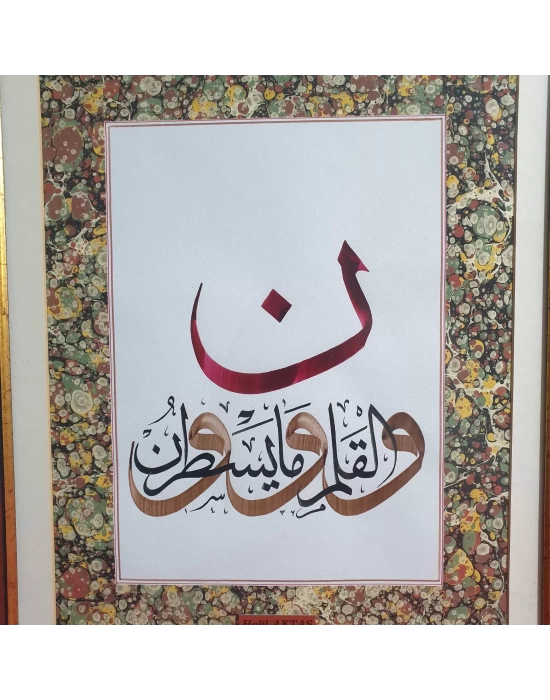 ن
والقلم وما يسطرون
Halil AKTAŞ